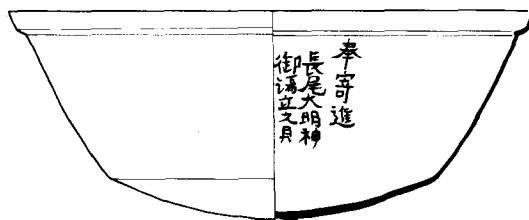 奉寄進
長尾大明神
御湯立之具